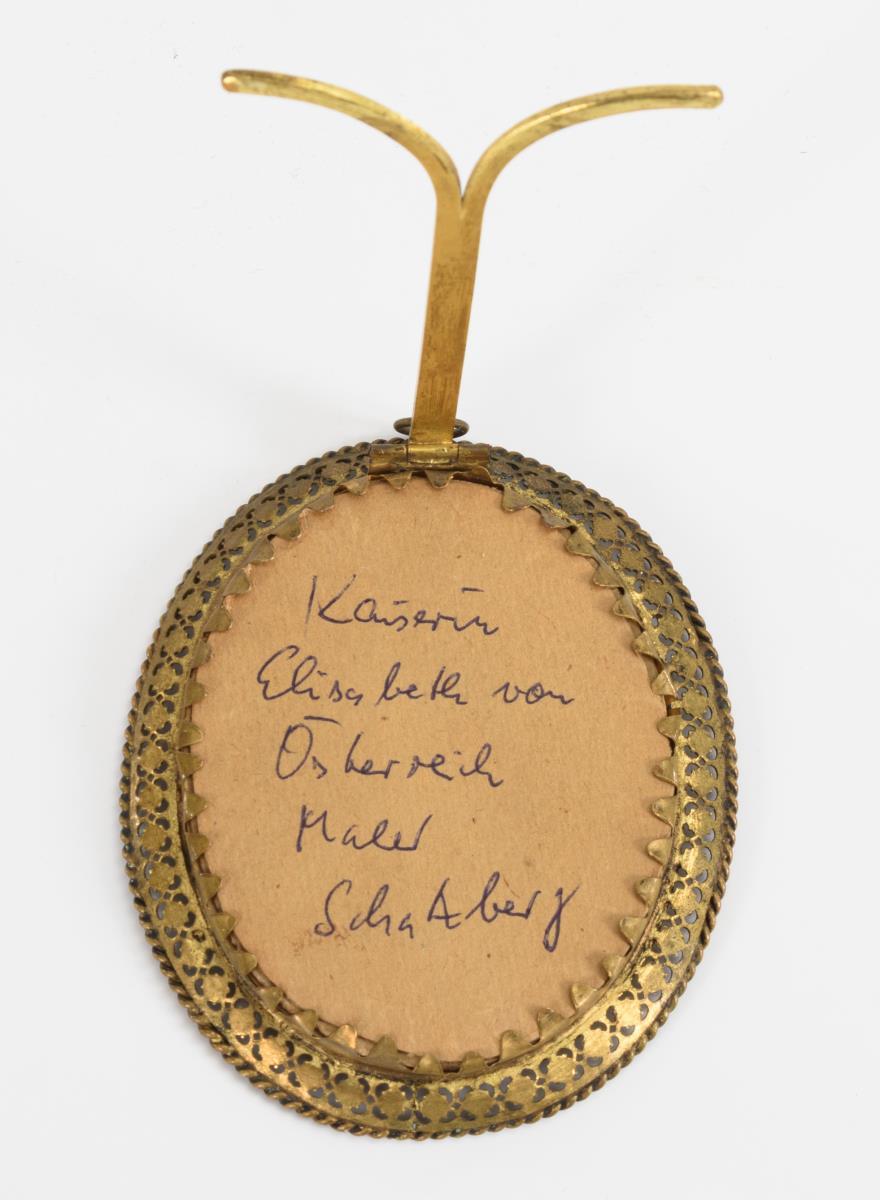 Kaiserin
Elisabeth von
Österreich
Maler
Schatzberg